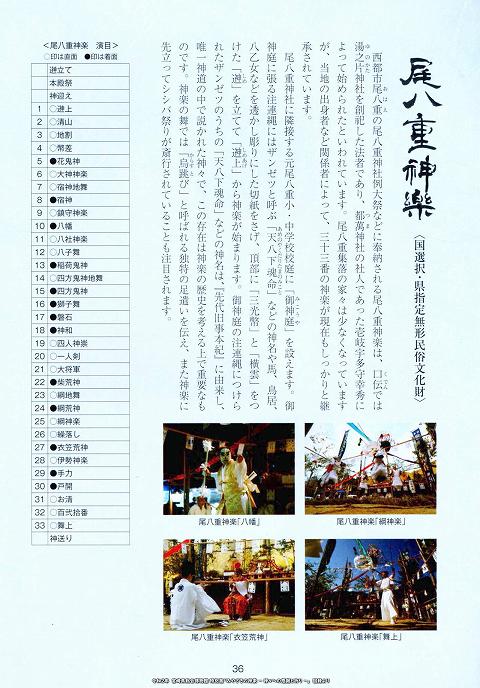 尾八重神楽
〈国選択・県指定無形民俗文化財〉
西都市尾八重の尾八重神社例大祭などに奉納される尾八重神楽は、口伝では
湯之片神社を創祀した法者であり、都萬神社の社人であった壱岐宇多守幸秀に
よって始められたといわれています。尾八重集落の家々は少なくなっています
が、当地の出身者など関係者によって、三十三番の神楽が現在もしっかりと継
承されています。
尾八重神社に隣接する元尾八重小・中学校校庭に「御神庭」を設えます。御
神庭に張る注連縄にはザンゼツと呼ぶ「天八下魂命」などの神名や馬、鳥居、
八乙女などを透かし彫りにした切紙をさげ、頂部に「三光幣」と「横雲」をつ
けた「遊」を立てて「遊上」から神楽が始まります。御神庭の注連縄につけら
れたザンゼツのうちの「天八下魂命」などの神名は、『先代旧事本紀』に由来し、
唯一神道の中で説かれた神々で、この存在は神楽の歴史を考える上で重要なも
のです。神楽の舞では「烏跳び」と呼ばれる独特の足遣いを伝え、また神楽に
先立ってシシバ祭りが斎行されていることも注目されます。
<尾八重神楽 演目>
○印は直面 ●印は着面
遊立て
本殿祭
神迎え
1 ○遊上
2 ○清山
3 ○地割
4 ○幣差
5 ●花鬼神
6 ○大神神楽
7 ○宿神地舞
8 ●宿神
9 ○鎮守神楽
10 ●八幡
11 ○八社神楽
12 ○八子舞
13 ●稲荷鬼神
14 ○四方鬼神地舞
15 ●四方鬼神
16 ●獅子舞
17 ●磐石
18 ●神和
19 ○四人神崇
20 ○一人剣
21 ○大将軍
22 ●柴荒神
23 ○綱地舞
24 ●綱荒神
25 ○綱神楽
26 ○繰落し
27 ●衣笠荒神
28 ○伊勢神楽
29 ●手力
30 ●戸開
31 ○お清
32 ○百弐拾番
33 ○舞上
神送り
尾八重神楽「八幡」
尾八重神楽「綱神楽」
尾八重神楽「衣笠荒神」
尾八重神楽「舞上」
36